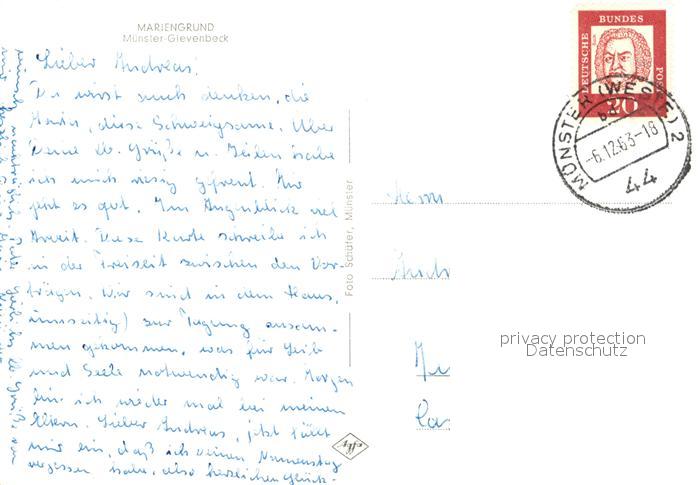 MARIENGRUND
Münster-Gievenbeck
Lieber Andreas!
Du wirst auch denken, die
diese Schweigsame. Über
Deine lb. Grüße u. Zeilen habe
ich mich riesig gefreut. Mir
geht es gut. Im Augenblick viel
Arbeit. Diese Karte schreibe ich
in der Freizeit zwischen den Vor-
trägen. Wir sind in dem Haus
(umseitig) zur Tagung zusam-
men gekommen, was für Leib
und Seele notwendig war. Morgen
bin ich wieder mal bei meinen
Eltern. Lieber Andreas, jetzt fällt
mir ein, daß ich Deinen Namenstag
vergessen habe, also herzlichen Glück-
Foto Schäfer, Münster
Herrn
Andr
DEUTSCHE BUNDESPOST
20
MÜNSTER (WESTF) 2
-6.12.63-18
44
privacy protection
Datenschutz